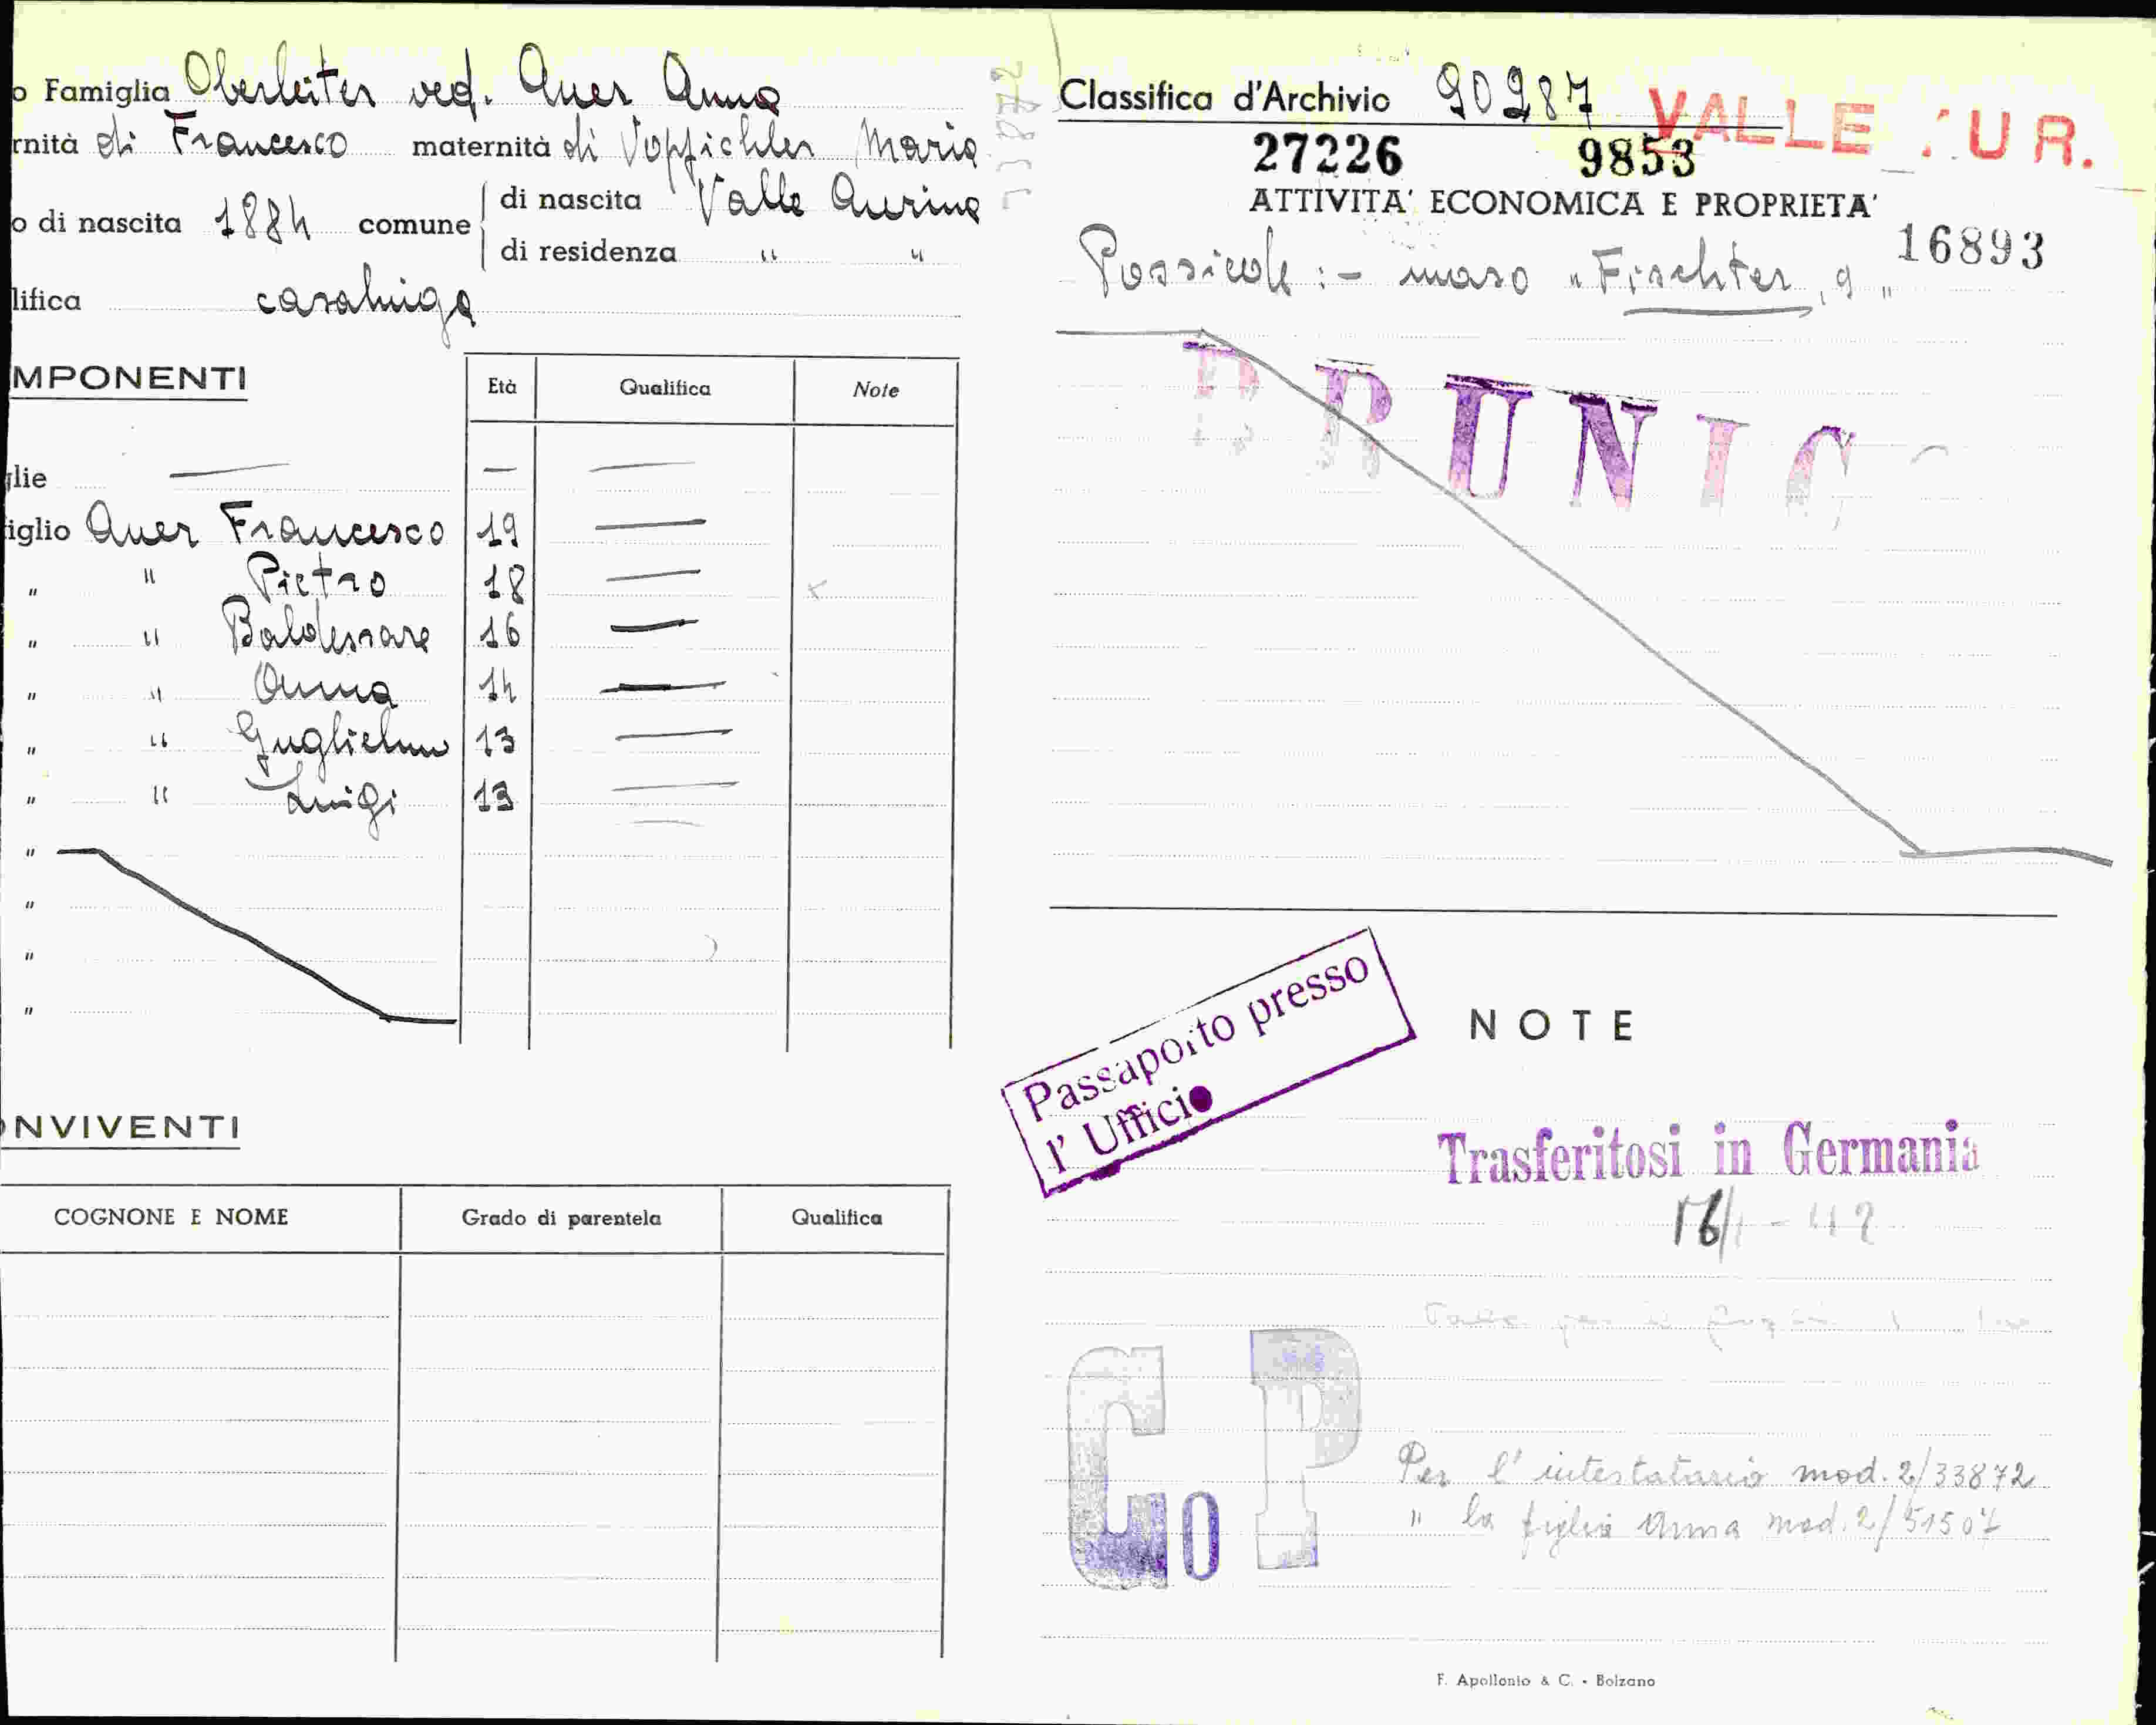 o Famiglia Oberleiter ved. Auer Anna
rnità di Francesco maternità di Voppichler Maria
o di nascita 1884 comune di nascita Valle Aurina
di residenza " "
lifica casalinga
MPONENTI
Età Qualifica Note
glie — — —
iglio Auer Francesco 19 —
" " Pietro 18 — x
" " Baldessare 16 —
" " Anna 14 —
" " Guglielmo 13 —
" " Luigi 13 —
"
"
"
"
ONVIVENTI
COGNONE E NOME Grado di parentela Qualifica
33872
Classifica d'Archivio 90287
VALLE UR.
27226 9853
ATTIVITA' ECONOMICA E PROPRIETA'
16893
Possiede :- maso "Fischter, 9"
BRUNICO
Passaporto presso
l' Ufficio
NOTE
Trasferitosi in Germania
16/1-42
G 10 P
Per l'intestatario mod. 2/33872
" la figlia Anna mod. 2/51507
F. Apollonio & C. - Bolzano